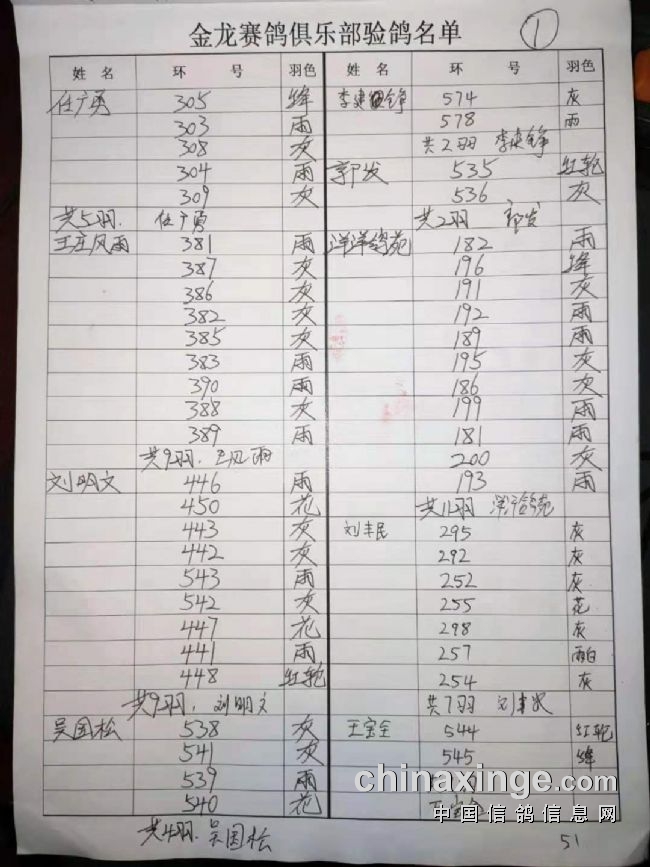 金龙赛鸽俱乐部验鸽名单
1
姓 名 环 号 羽色
任广勇 305 绛
303 雨
308 灰
304 雨
309 灰
共5羽. 任广勇
王庄风雨 381 雨
387 灰
386 灰
382 灰
385 灰
383 雨
390 雨
388 灰
389 雨
共9羽. 王风雨
刘明文 446 雨
450 花
443 灰
442 灰
543 雨
542 灰
447 花
441 雨
448 红轮
共9羽. 刘明文
吴国松 538 灰
541 灰
539 雨
540 花
共4羽. 吴国松
姓 名 环 号 羽色
李建锋 574 灰
578 雨
共2羽 李建锋
郭发 535 红轮
536 灰
共2羽 郭发
洋洋鸽苑 182 雨
196 绛
191 灰
192 雨
189 雨
195 灰
186 灰
199 雨
181 雨
200 灰
193 雨
共11羽 洋洋鸽苑
刘丰民 295 灰
292 灰
252 灰
255 花
298 灰
257 雨白
254 灰
共7羽 刘丰民
王宝全 544 红轮
545 绛
王宝全
51
chinaxinge.com
中国信鸽信息网